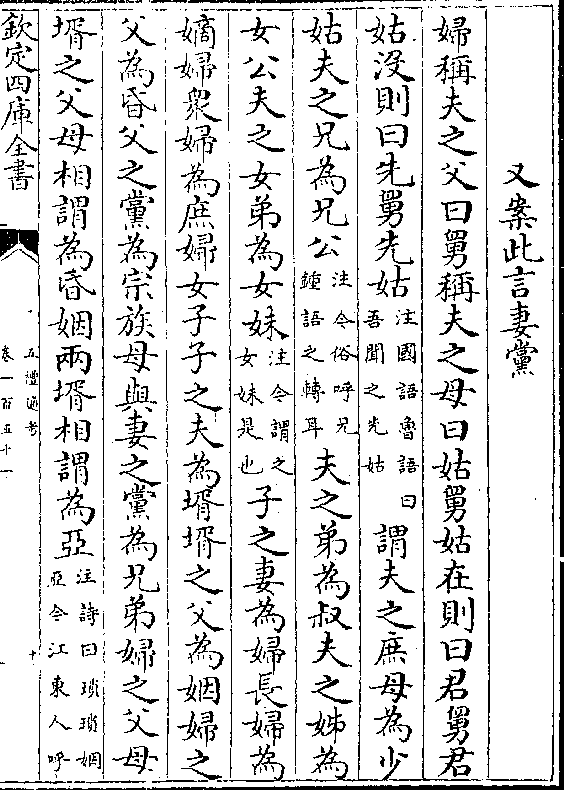 又案此言妻黨
婦稱夫之父曰舅稱夫之母曰姑舅姑在則曰君舅君
姑沒則曰先舅先姑注國語魯語曰吾聞之先姑謂夫之庶母為少
姑夫之兄為兄公注今俗呼兄鍾語之轉耳夫之弟為叔夫之姊為
女公夫之女弟為女妹注今謂之女妹是也子之妻為婦長婦為
嫡婦衆婦為庶婦女子子之夫為壻壻之父為姻婦之
父為昏父之黨為宗族母與妻之黨為兄弟婦之父母
壻之父母相謂為昏姻兩壻相謂為亞注詩曰瑣瑣姻亞今江東人呼
欽定四庫全書
五禮通考
卷一百五十一
十